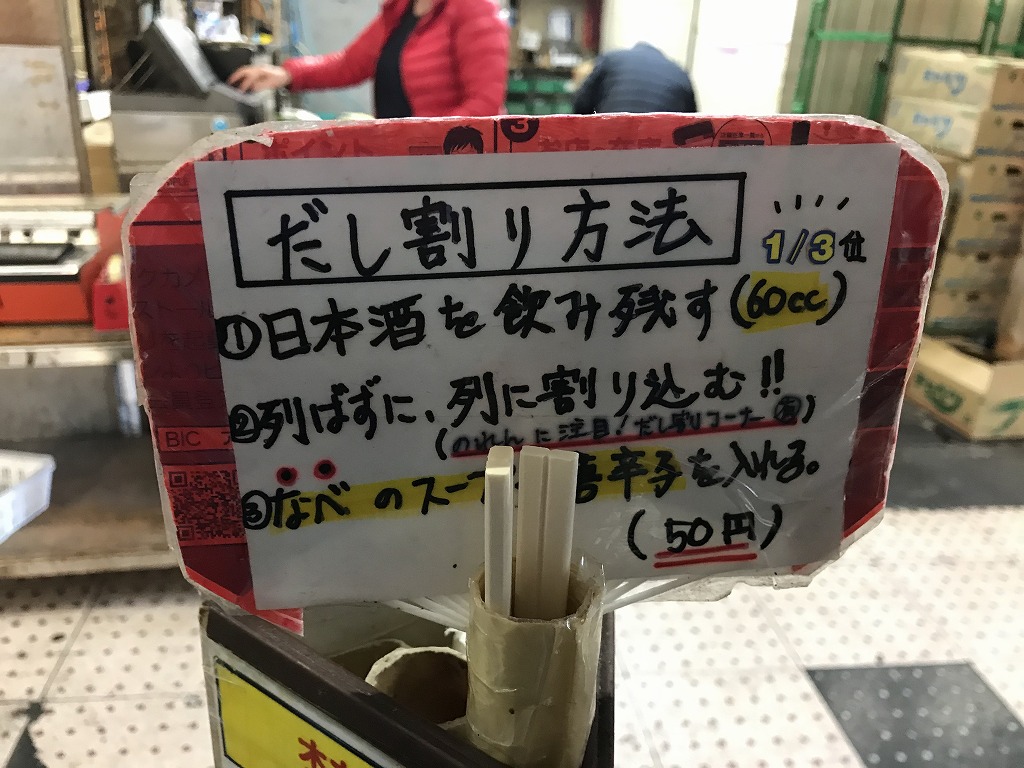 だし割り方法
1/3位
①日本酒を飲み残す(60cc)
②列ばずに、列に割り込む!!
(のれんに注目!だし割りコーナー有)
③なべのスー 唐辛子を入れる。
(50円)
ポイント
BIC